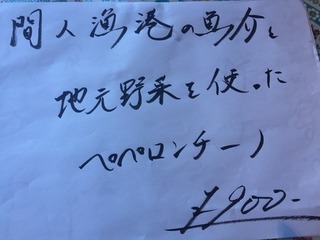 間人漁港の魚介と
地元野菜を使った
ペペロンチーノ
¥900-